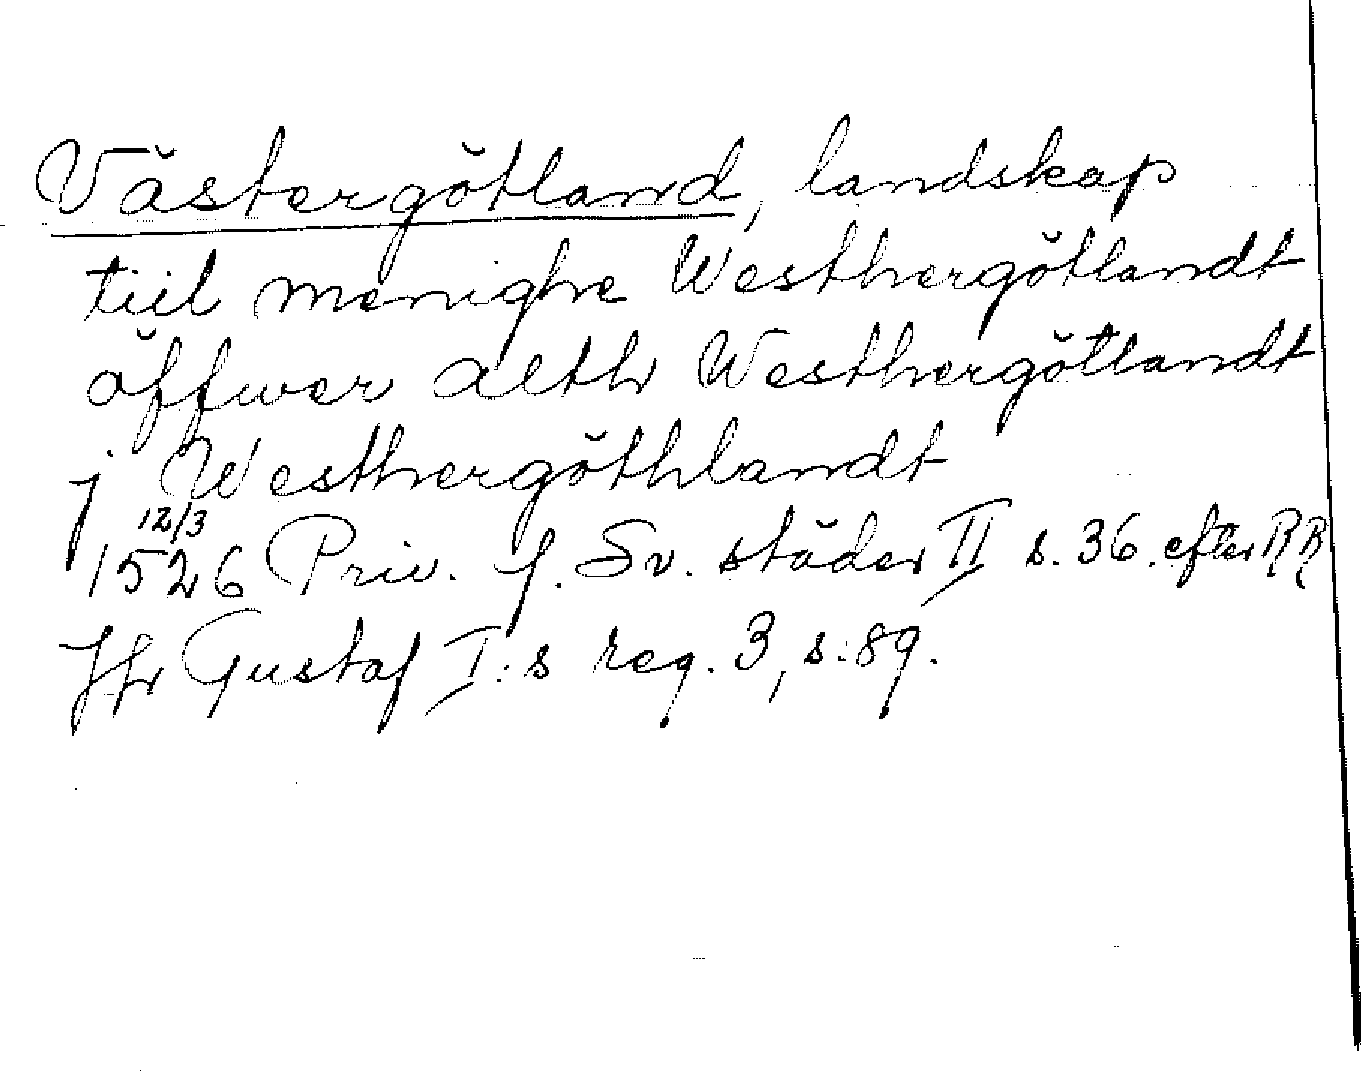 Västergötland, landskap
tiil menighe Westhergötlandt
öffwer alth Westhergötlandt
j Westhergöthlandt
12/3
1526 Priv. f. Sv. städer II s. 36. efter RR
Jfr Gustaf I:s reg. 3, s. 89.